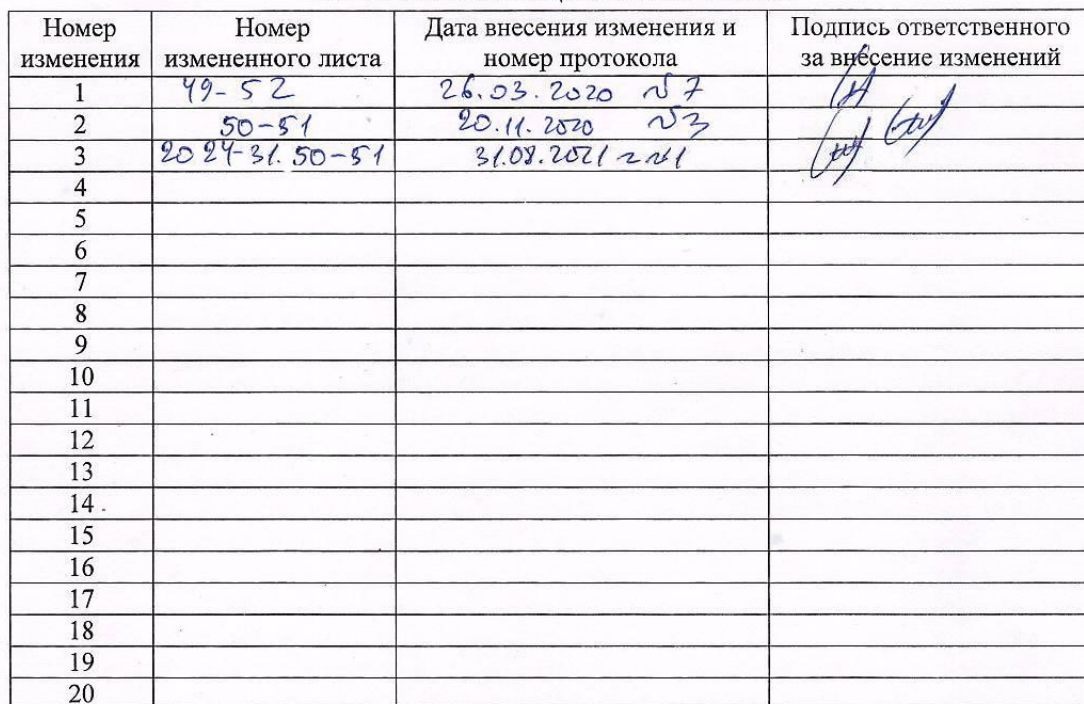 Номер изменения Номер измененного листа Дата внесения изменения и номер протокола Подпись ответственного за внесение изменений
1 49-52 26.03.2020 №7
2 50-51 20.11.2020 №3
3 50-51 31.08.2021 г №1
4
5
6
7
8
9
10
11
12
13
14
15
16
17
18
19
20